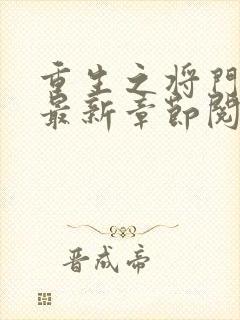 重生之将门
最新章节阅
晋成帝